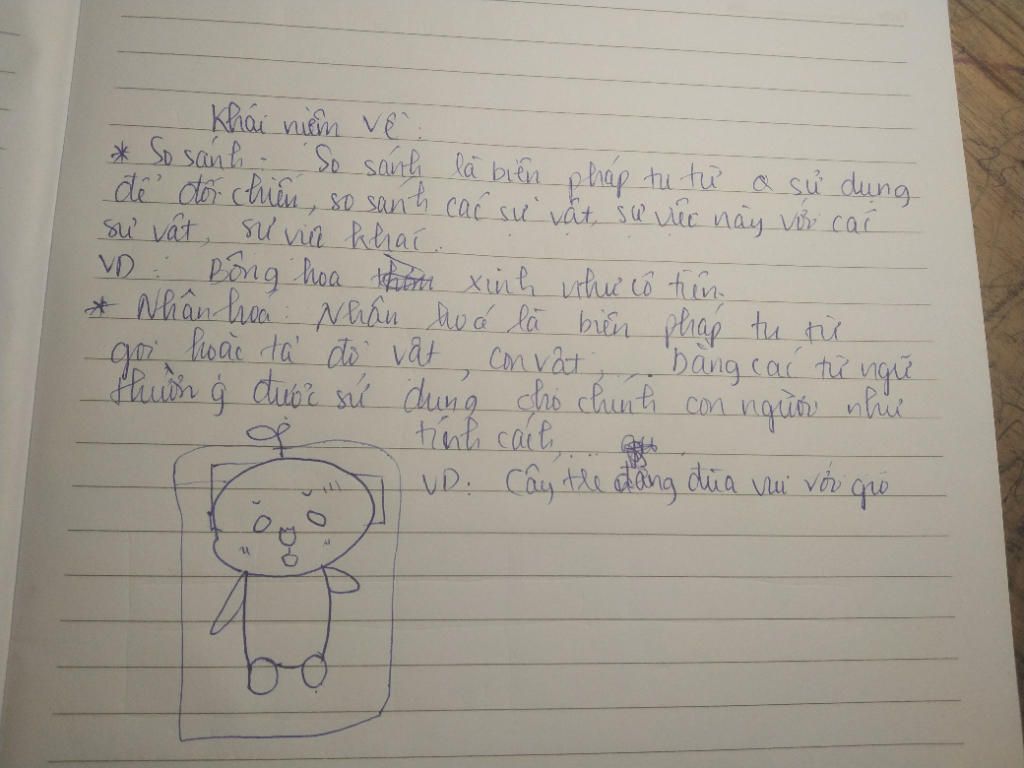 Khái niệm về:
* So sánh: So sánh là biện pháp tu từ sử dụng
để đối chiếu, so sánh các sự vật, sự việc này với các
sự vật, sự việc khác.
VD: Bông hoa xinh như cô tiên.
* Nhân hoá: Nhân hoá là biện pháp tu từ
gọi hoặc tả đồ vật, con vật,... bằng các từ ngữ
thường được sử dụng cho chính con người như
tính cách,...
VD: Cây tre đang đùa vui với gió